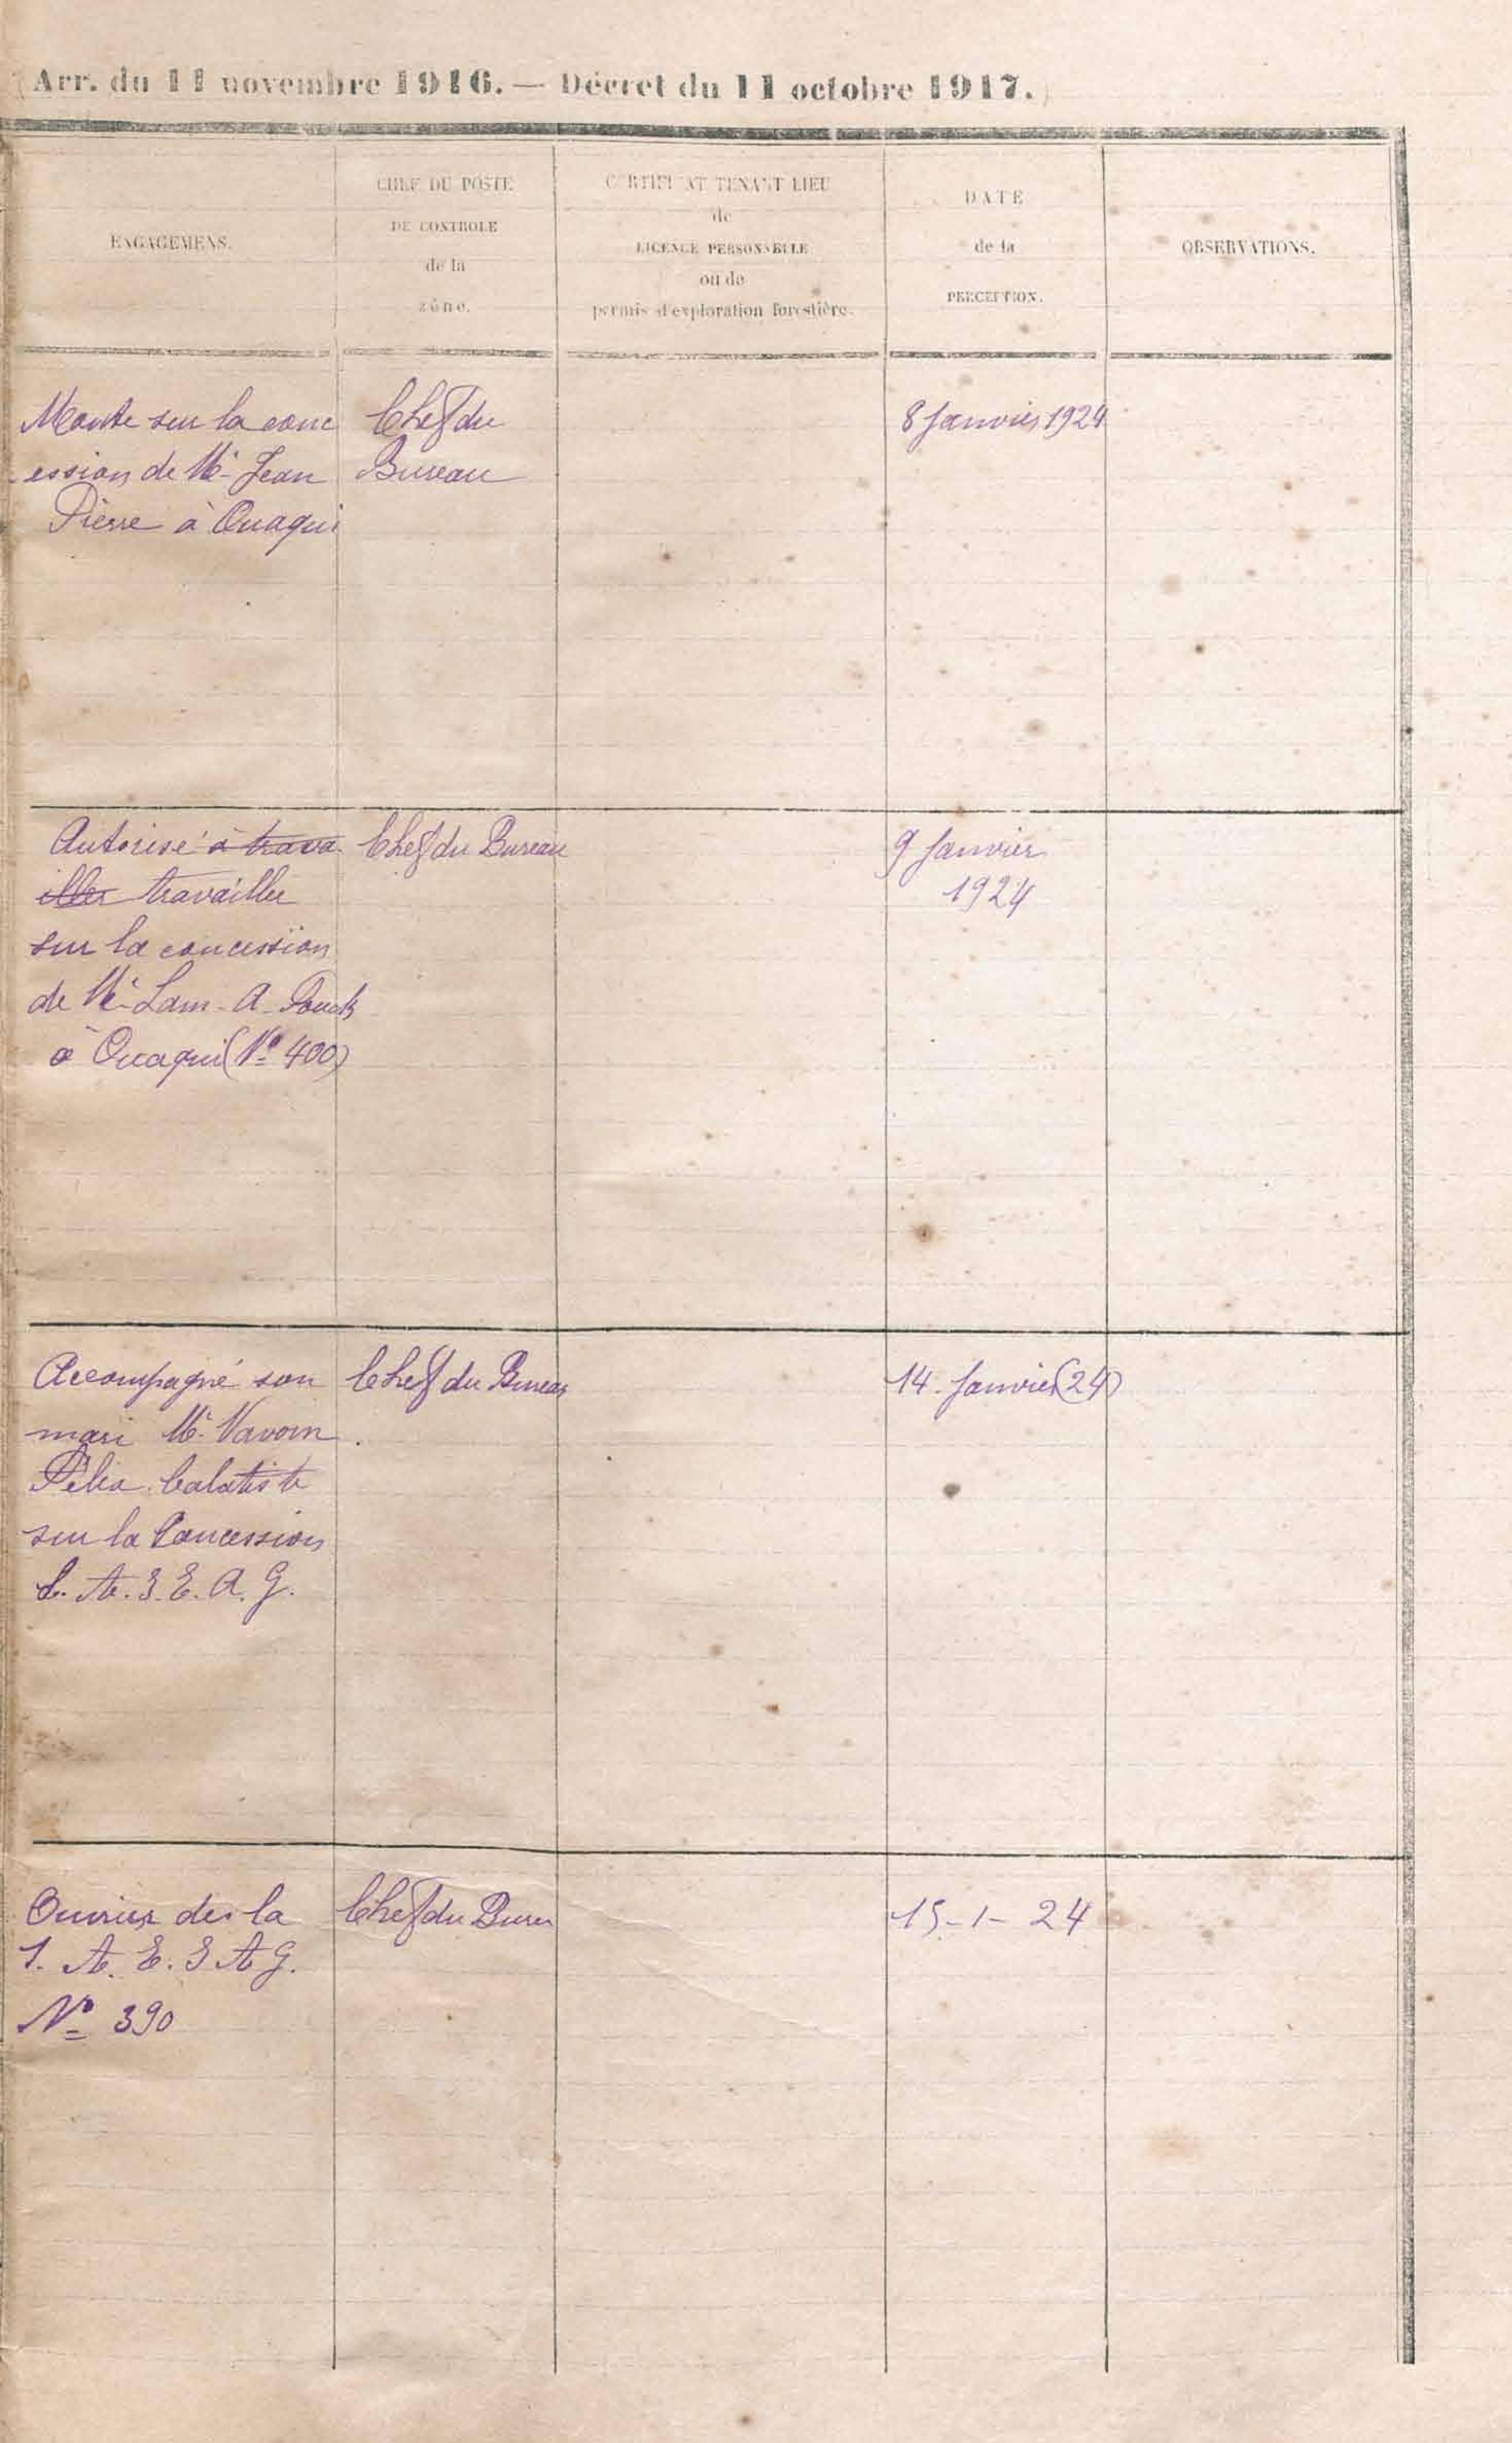 (Arr. du 11 novembre 1916. — Décret du 11 octobre 1917.)
ENGAGEMENS.
CHEF DU POSTE
DE CONTROLE
de la
zône.
CERTIFICAT TENANT LIEU
de
LICENCE PERSONNELLE
ou de
permis d'exploration forestière.
DATE
de la
PERCEPTION.
OBSERVATIONS.
Monte sur la conc
ession de Mr Jean
Pierre à Ouaqui
Chef du
Bureau
8 Janvier 1924
Autorisé à trava
iller travailler
sur la concession
de Mr Lam-A-Pouck
à Ouaqui (No 400)
Chef du Bureau
9 Janvier
1924
Accompagné son
mari Mr
sur la Concession
S. E. A. G.
Chef du Bureau
14. Janvier (24)
Ouvrier de la
A. G.
No 390
Chef du Bureu
15-1-24